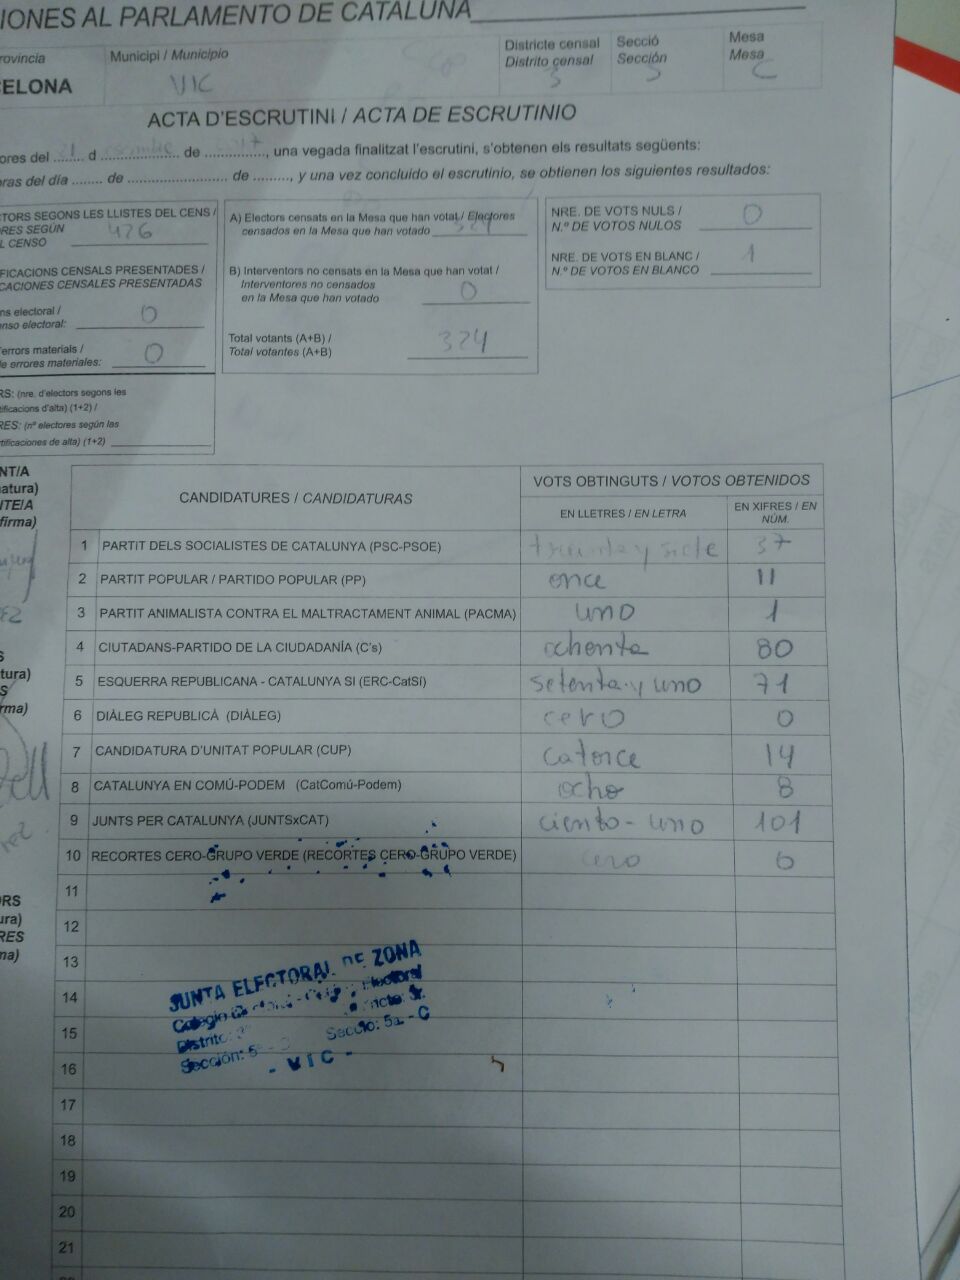 IONES AL PARLAMENTO DE CATALUÑA
rovincia
Municipi / Municipio
Districte censal
Distrito censal
Secció
Sección
Mesa
Mesa
ELONA
VIC
3
5
C
ACTA D'ESCRUTINI / ACTA DE ESCRUTINIO
ores del 21 d ........ de 2017, una vegada finalitzat l'escrutini, s'obtenen els resultats següents:
oras del día ........ de ........................ de ........., y una vez concluido el escrutinio, se obtienen los siguientes resultados:
TORS SEGONS LES LLISTES DEL CENS /
ORES SEGÚN
L CENSO
426
IFICACIONS CENSALS PRESENTADES /
CACIONES CENSALES PRESENTADAS
ns electoral /
enso electoral:
0
'errors materials /
de errores materiales:
0
RS: (nre. d'electors segons les
tificacions d'alta) (1+2) /
RES: (nº electores según las
rtificaciones de alta) (1+2)
A) Electors censats en la Mesa que han votat / Electores
censados en la Mesa que han votado
324
B) Interventors no censats en la Mesa que han votat /
Interventores no censados
en la Mesa que han votado
0
Total votants (A+B) /
Total votantes (A+B)
324
NRE. DE VOTS NULS /
N.º DE VOTOS NULOS
0
NRE. DE VOTS EN BLANC /
N.º DE VOTOS EN BLANCO
1
NT/A
natura)
ITE/A
firma)
CANDIDATURES / CANDIDATURAS
VOTS OBTINGUTS / VOTOS OBTENIDOS
EN LLETRES / EN LETRA
EN XIFRES / EN
NÚM.
1 PARTIT DELS SOCIALISTES DE CATALUNYA (PSC-PSOE) treinta y siete 37
2 PARTIT POPULAR / PARTIDO POPULAR (PP) once 11
3 PARTIT ANIMALISTA CONTRA EL MALTRACTAMENT ANIMAL (PACMA) uno 1
4 CIUTADANS-PARTIDO DE LA CIUDADANÍA (C's) ochenta 80
5 ESQUERRA REPUBLICANA - CATALUNYA SI (ERC-CatSí) setenta y uno 71
6 DIÀLEG REPUBLICÀ (DIÀLEG) cero 0
7 CANDIDATURA D'UNITAT POPULAR (CUP) catorce 14
8 CATALUNYA EN COMÚ-PODEM (CatComú-Podem) ocho 8
9 JUNTS PER CATALUNYA (JUNTSxCAT) ciento - uno 101
10 RECORTES CERO-GRUPO VERDE (RECORTES CERO-GRUPO VERDE) cero 0
11
12
13
14
15
16
17
18
19
20
21
S
tura)
S
rma)
ORS
ura)
RES
ma)
JUNTA ELECTORAL DE ZONA
Electoral
Distrito:
Secció: 5a - C
Sección: 5
- VIC -